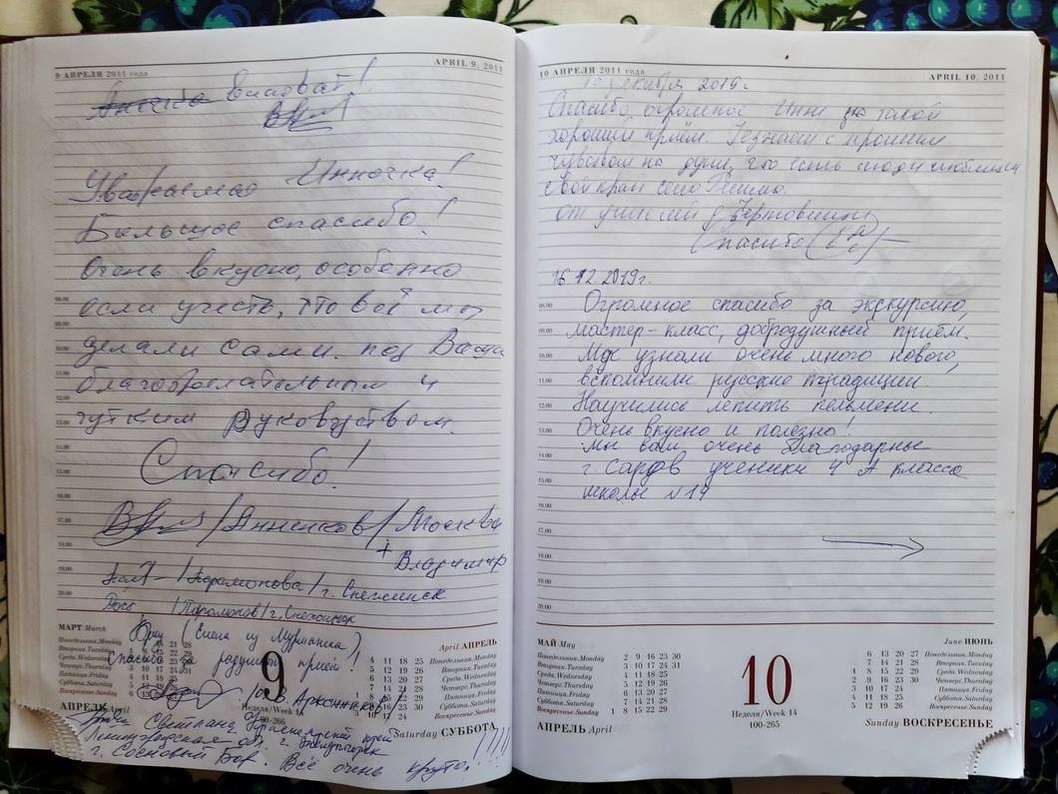 9 АПРЕЛЯ 2011 года
APRIL 9. 2011
Анечка виноват!
Уважаемая Инночка!
Большое спасибо!
Очень вкусно, особенно
если учесть, что всё мы
делали сами. под Ваши
благожелательным и
чутким руководством.
Спасибо!
/Анненков/ Москва
+ Владимир
/Парамонова/ г. Снежинск
/Парамонов/ г. Снежинск
(Елена из Мурманска)
Спасибо за радушный приём!
Светлана
Ленинградская обл. г.
г. Сосновый Бор. Всё очень круто!!!!!
МАРТ March
Понедельник.Monday
Вторник.Tuesday
Среда.Wednesday
Четверг.Thursday
Пятница.Friday
Суббота.Saturday
Воскресенье.Sunday
АПРЕЛЬ April
9
Неделя/Week 14
April АПРЕЛЬ
4 11 18 25 Понедельник.Monday
5 12 19 26 Вторник.Tuesday
6 13 20 27 Среда.Wednesday
7 14 21 28 Четверг.Thursday
Пятница.Friday
Суббота.Saturday
Воскресенье.Sunday
Saturday СУББОТА
10 АПРЕЛЯ 2011 года
APRIL 10. 2011
декабря 2019г.
Спасибо огромное Инне за такой
хороший приём. Уезжаем с
чувством на душе, что есть люди
свой край село Решма.
от учителей д.
Спасибо
16.12.2019г.
08.00 Огромное спасибо за экскурсию,
09.00 мастер-класс, добродушный приём.
10.00 Мы узнали очень много нового,
11.00 вспомнили русские традиции.
12.00 Научились лепить пельмени.
13.00 Очень вкусно и полезно!
14.00 Мы вам очень благодарны
15.00 г. Саров ученики 4 А класса
школы №14
16.00
17.00
18.00
19.00
20.00
МАЙ May
Понедельник.Monday 2 9 16 23 30
Вторник.Tuesday 3 10 17 24 31
Среда.Wednesday 4 11 18 25
Четверг.Thursday 5 12 19 26
Пятница.Friday 6 13 20 27
Суббота.Saturday 7 14 21 28
Воскресенье.Sunday 1 8 15 22 29
АПРЕЛЬ April
10
Неделя/Week 14
100-265
June ИЮНЬ
6 13 20 27 Понедельник.Monday
7 14 21 28 Вторник.Tuesday
1 8 15 22 29 Среда.Wednesday
2 9 16 23 30 Четверг.Thursday
3 10 17 24 Пятница.Friday
4 11 18 25 Суббота.Saturday
5 12 19 26 Воскресенье.Sunday
Sunday ВОСКРЕСЕНЬЕ